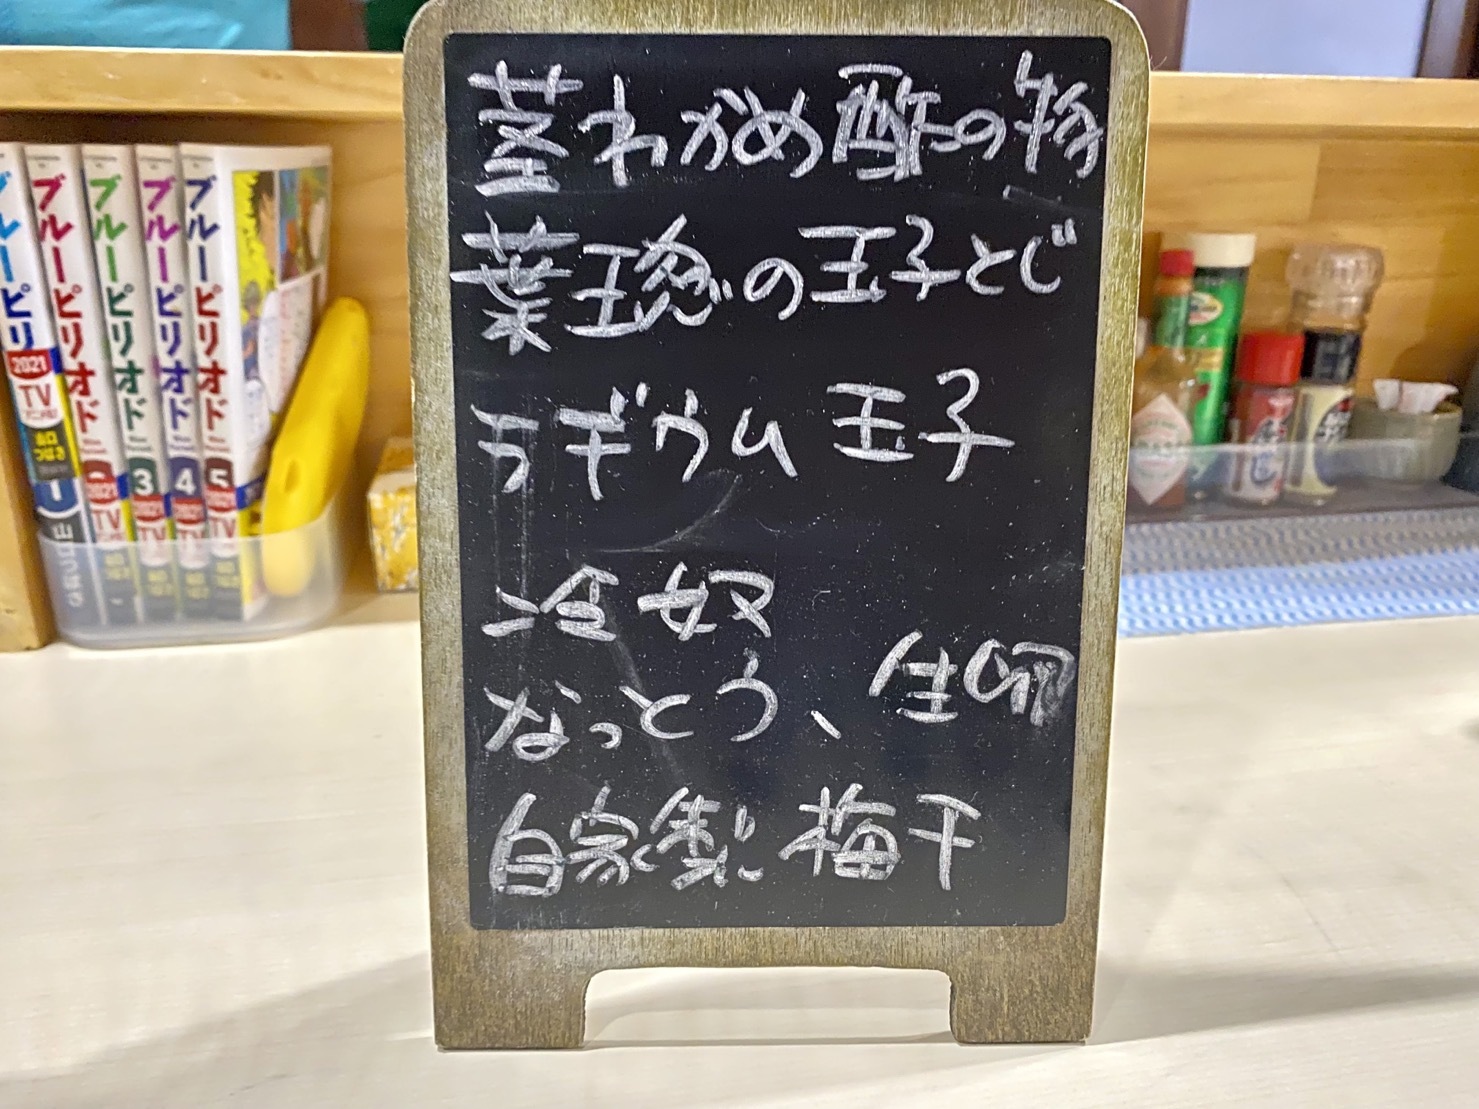 茎わかめ酢の物
葉玉葱の玉子とじ
ラヂウム玉子
冷奴
なっとう、生卵
自家製梅干
ブルーピリ
2021
TV
山口
つばさ
1
ブルーピリオド
2
2021
TV
ブルーピリオド
3
2021
TV
ブルーピリオド
4
2021
ブルーピリオド
5
2021
TV